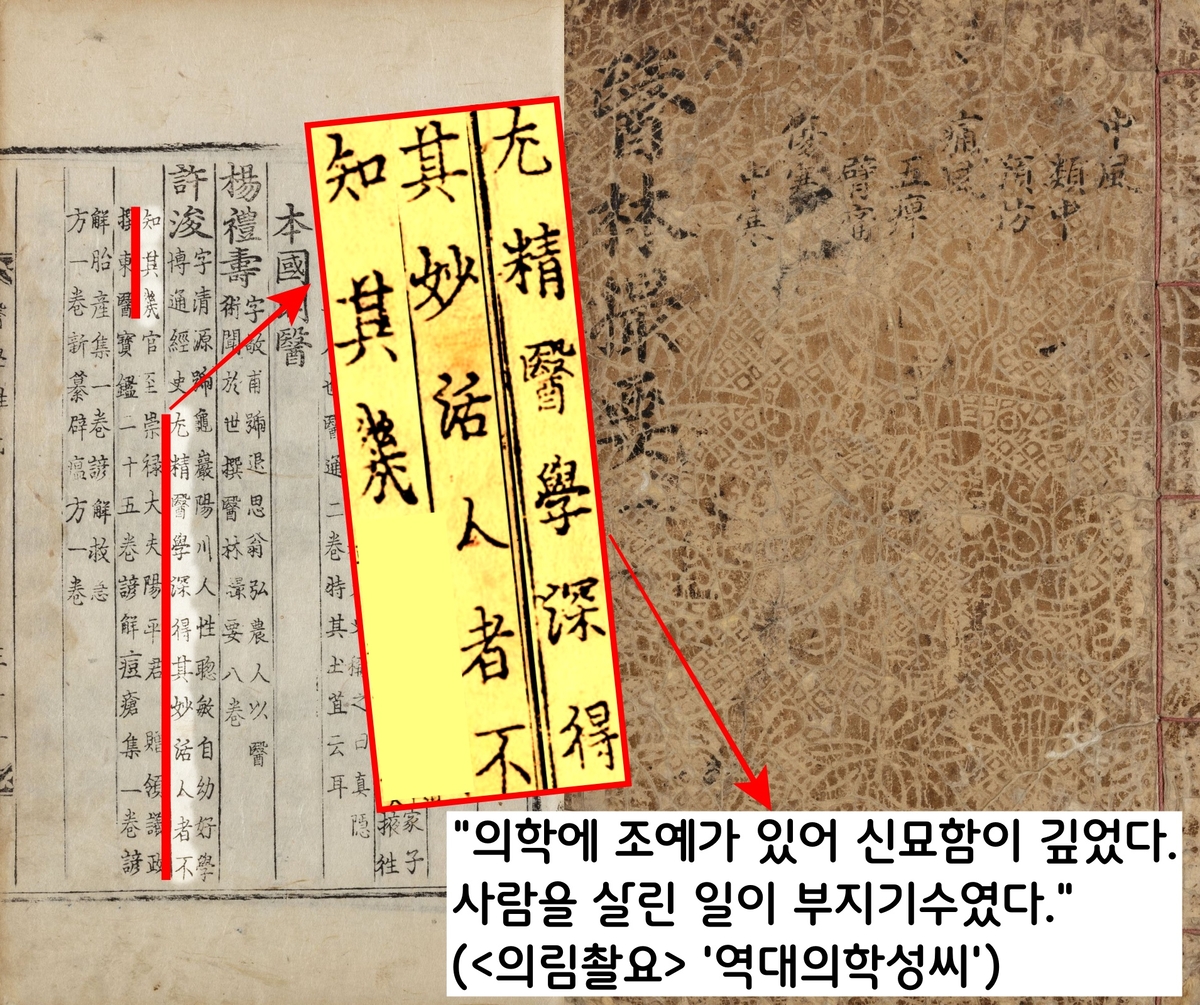 本國明醫
楊禮壽
字敬甫號退思翁弘農人以醫
術聞於世撰醫林撮要八卷
許浚
字清源號龜巖陽川人性聰敏自幼好學
博通經史尤精醫學深得其妙活人者不
知其幾官至崇禄大夫陽平君 贈領議政
撰東醫寶鑑二十五卷諺解痘瘡集一卷諺
解胎產集一卷諺解救急
方一卷新纂辟瘟方一卷
稱之曰真隱
醫通二卷時其土苴云耳
尤精醫學深得
其妙活人者不
知其幾
中風
類中
痛風
五痹
醫林撮要
"의학에 조예가 있어 신묘함이 깊었다.
사람을 살린 일이 부지기수였다."
(<의림촬요> '역대의학성씨')